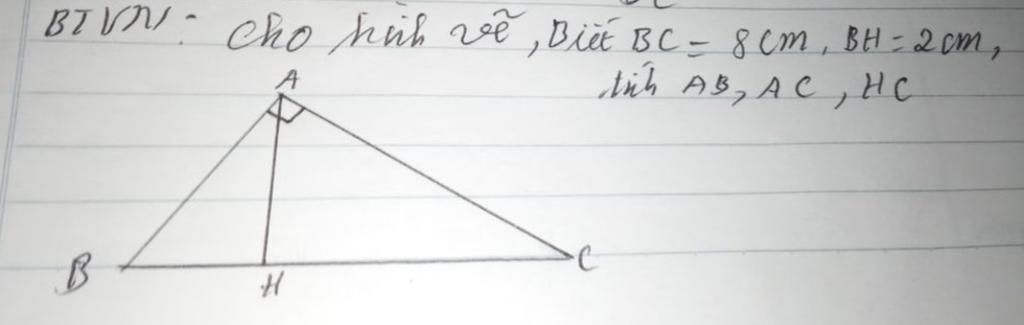 BTVN: Cho hình vẽ, Biết BC = 8cm, BH = 2cm,
tính AB, AC, HC
A
B
H
C